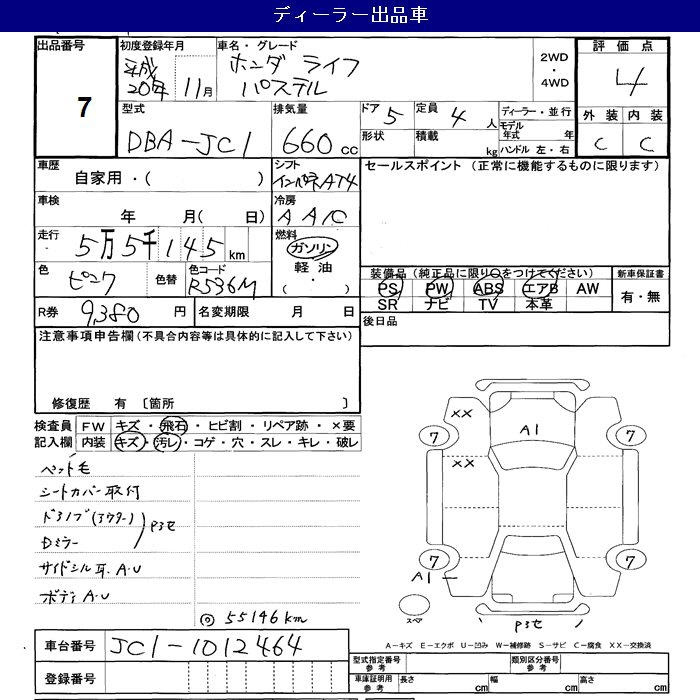 ディーラー出品車
出品番号 7
初度登録年月 平成20年 11月
車名・グレード ホンダ ライフ パステル
2WD・4WD
評価点 4
外装 内装
C C
型式 DBA-JC1
排気量 660 cc
ドア 5
形状
定員 4 人
積載 kg
ディーラー・並行
モデル年式 年
ハンドル 左・右
車歴 自家用・( )
シフト インパネAT4
セールスポイント (正常に機能するものに限ります)
車検 年 月( 日)
冷房 AAC
走行 5万5千145km
燃料 ガソリン・軽油・( ・ )
色 ピンク
色替
色コード R536M
装備品 (純正品に限り○をつけてください)
新車保証書
PS PW ABS エアB AW
有・無
SR ナビ TV 本革
R券 9,380 円
名変期限 月 日
後日品
注意事項申告欄 (不具合内容等は具体的に記入して下さい)
修復歴 有 〔箇所 〕
検査員 FW キズ・飛石・ヒビ割・リペア跡・×要
記入欄 内装 キズ・汚レ・コゲ・穴・スレ・キレ・破レ
ペット毛
シートカバー取付
ドアノブ(アウター)
P3セ
Dミラー
サイドシル耳.A.U
ボディA.U
◎55146km
XX
A1
7 7
XX
7 7
A1
スペア
P3セ
A-キズ E-エクボ U-凹み W-補修跡 S-サビ C-腐食 XX-交換済
車台番号 JC1-1012464
登録番号
型式指定番号 参考
類別区分番号 参考
車庫証明用 参考
長さ cm
幅 cm
高さ cm